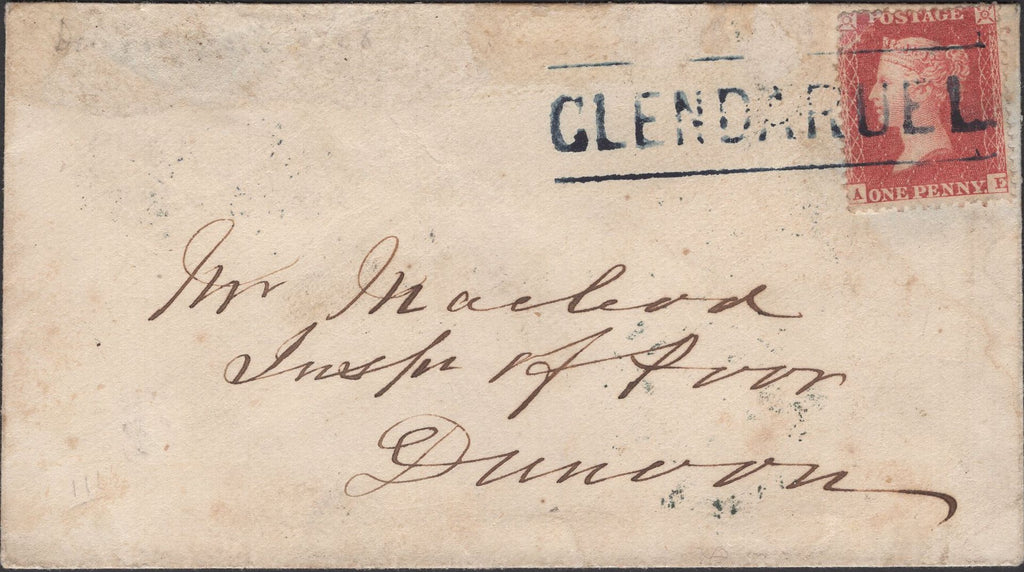 POSTAGE
GLENDARUEL
A ONE PENNY E
Mr Macleod
Inspr of Poor
Dunoon
111